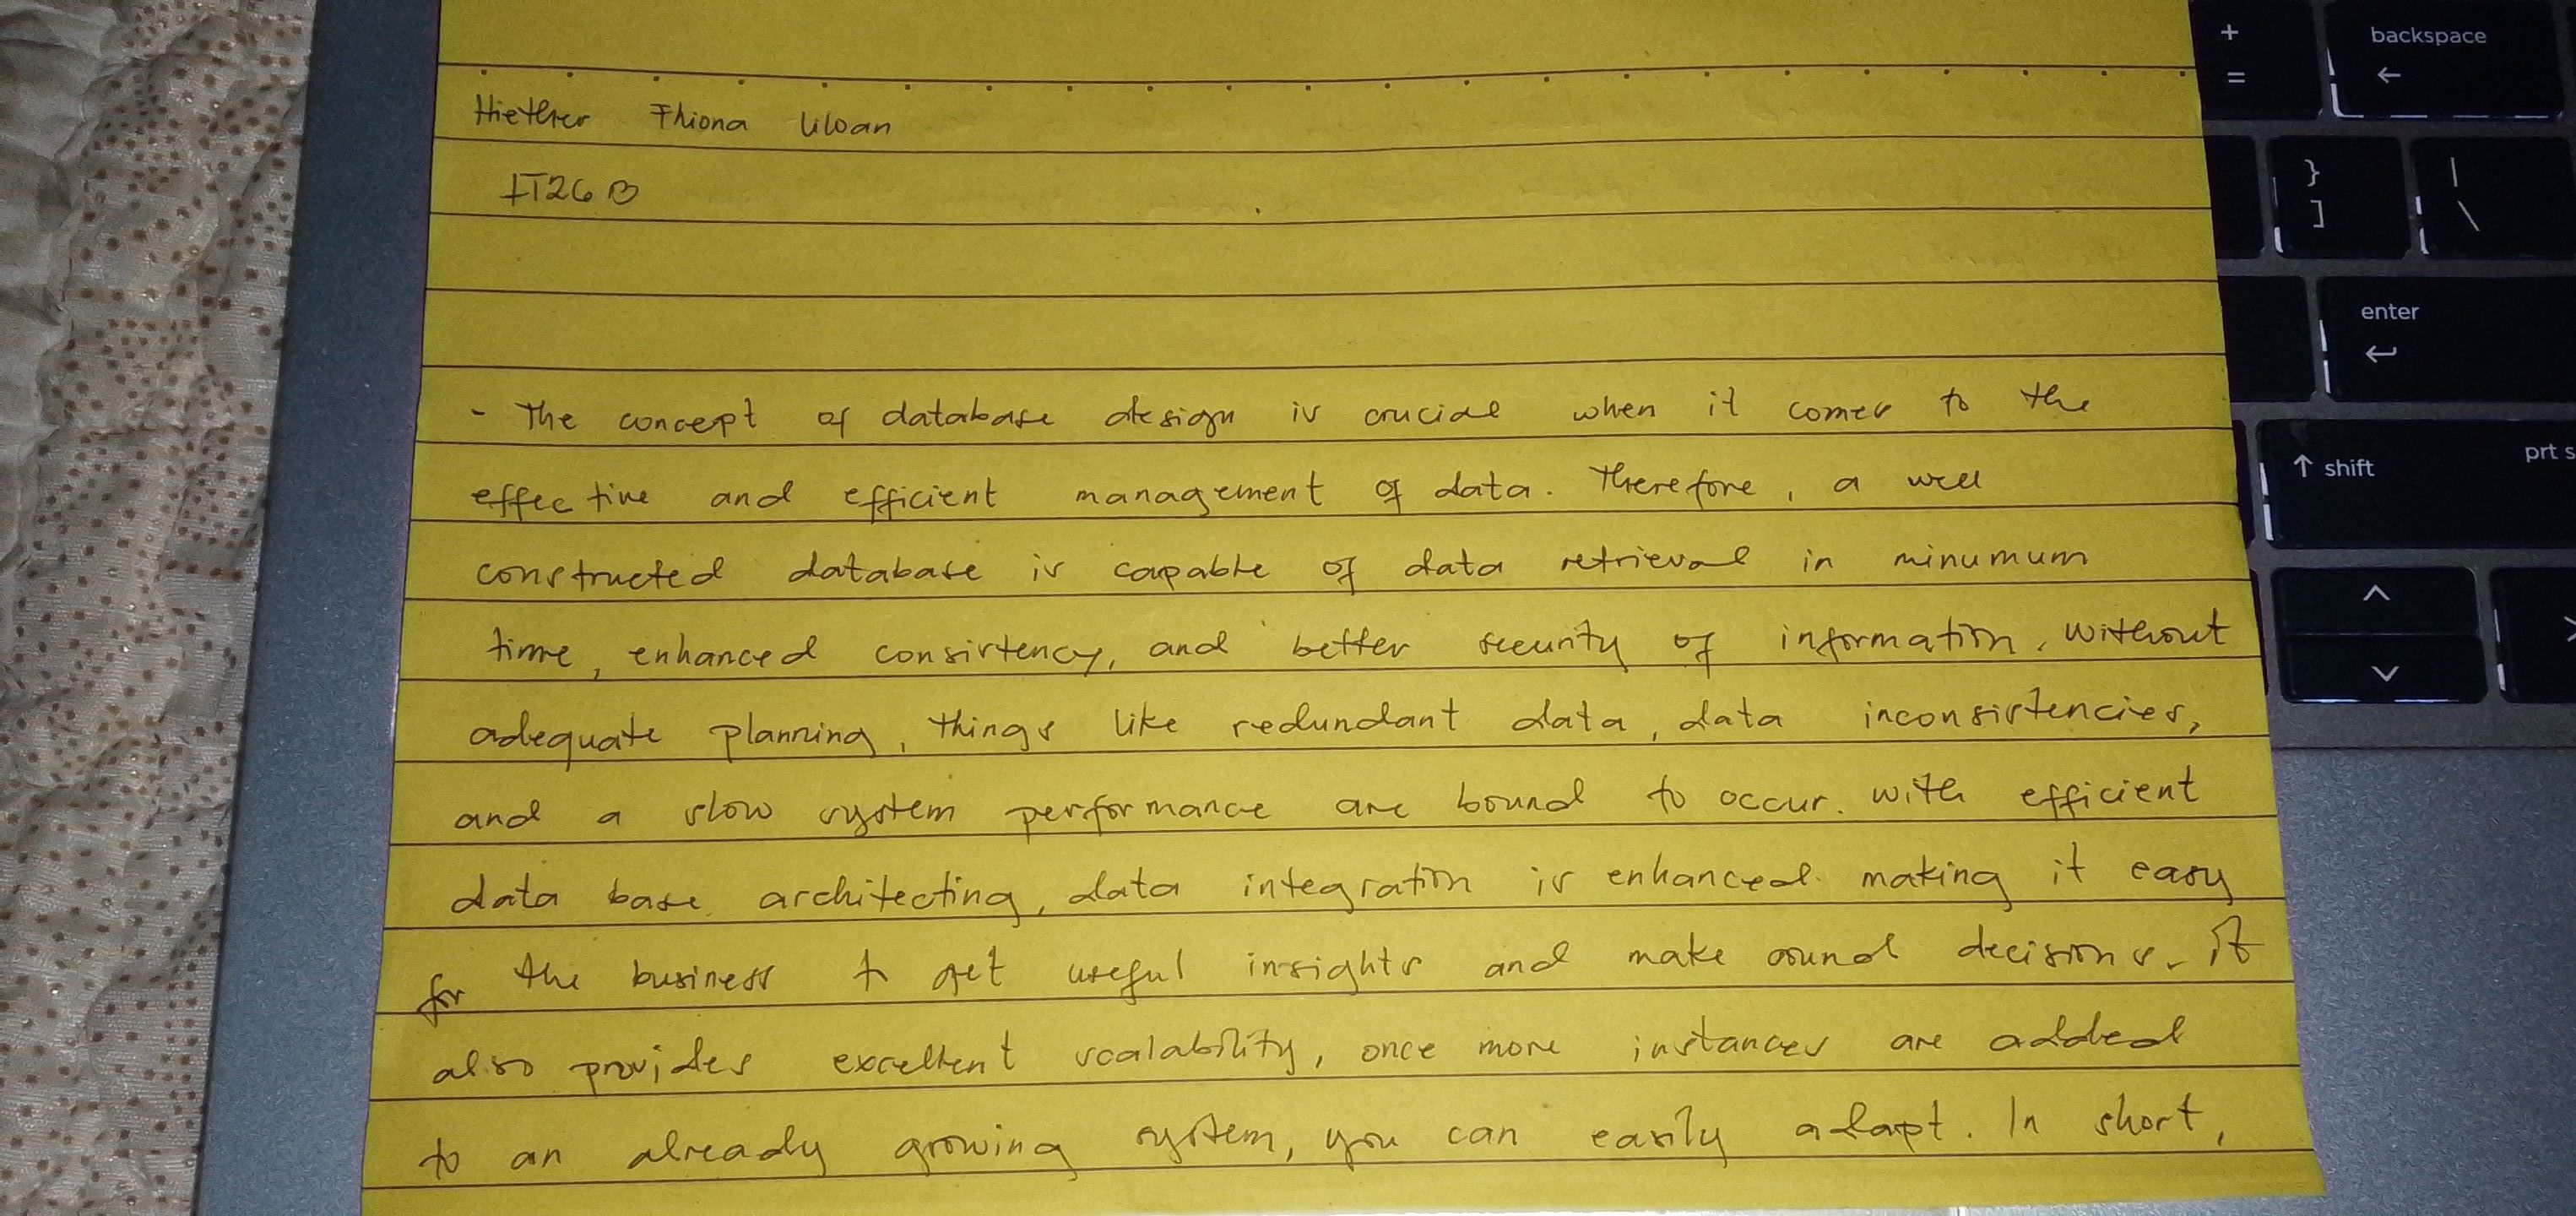 Hiether Fhiona Uloan
IT26 B
- The concept of database design is crucial when it comes to the
effective and efficient management of data. Therefore, a well
constructed database is capable of data retrieval in minumum
time, enhanced consistency, and better security of information. Without
adequate planning, things like redundant data, data inconsistencies,
and a slow system performance are bound to occur. With efficient
data base architecting, data integration is enhanced making it easy
for the business to get useful insights and make sound decisions. It
also provides excellent scalability, once more instances are added
to an already growing system, you can easily adapt. In short,
+
=
backspace
←
}
]
|
\
enter
↑ shift
prt s